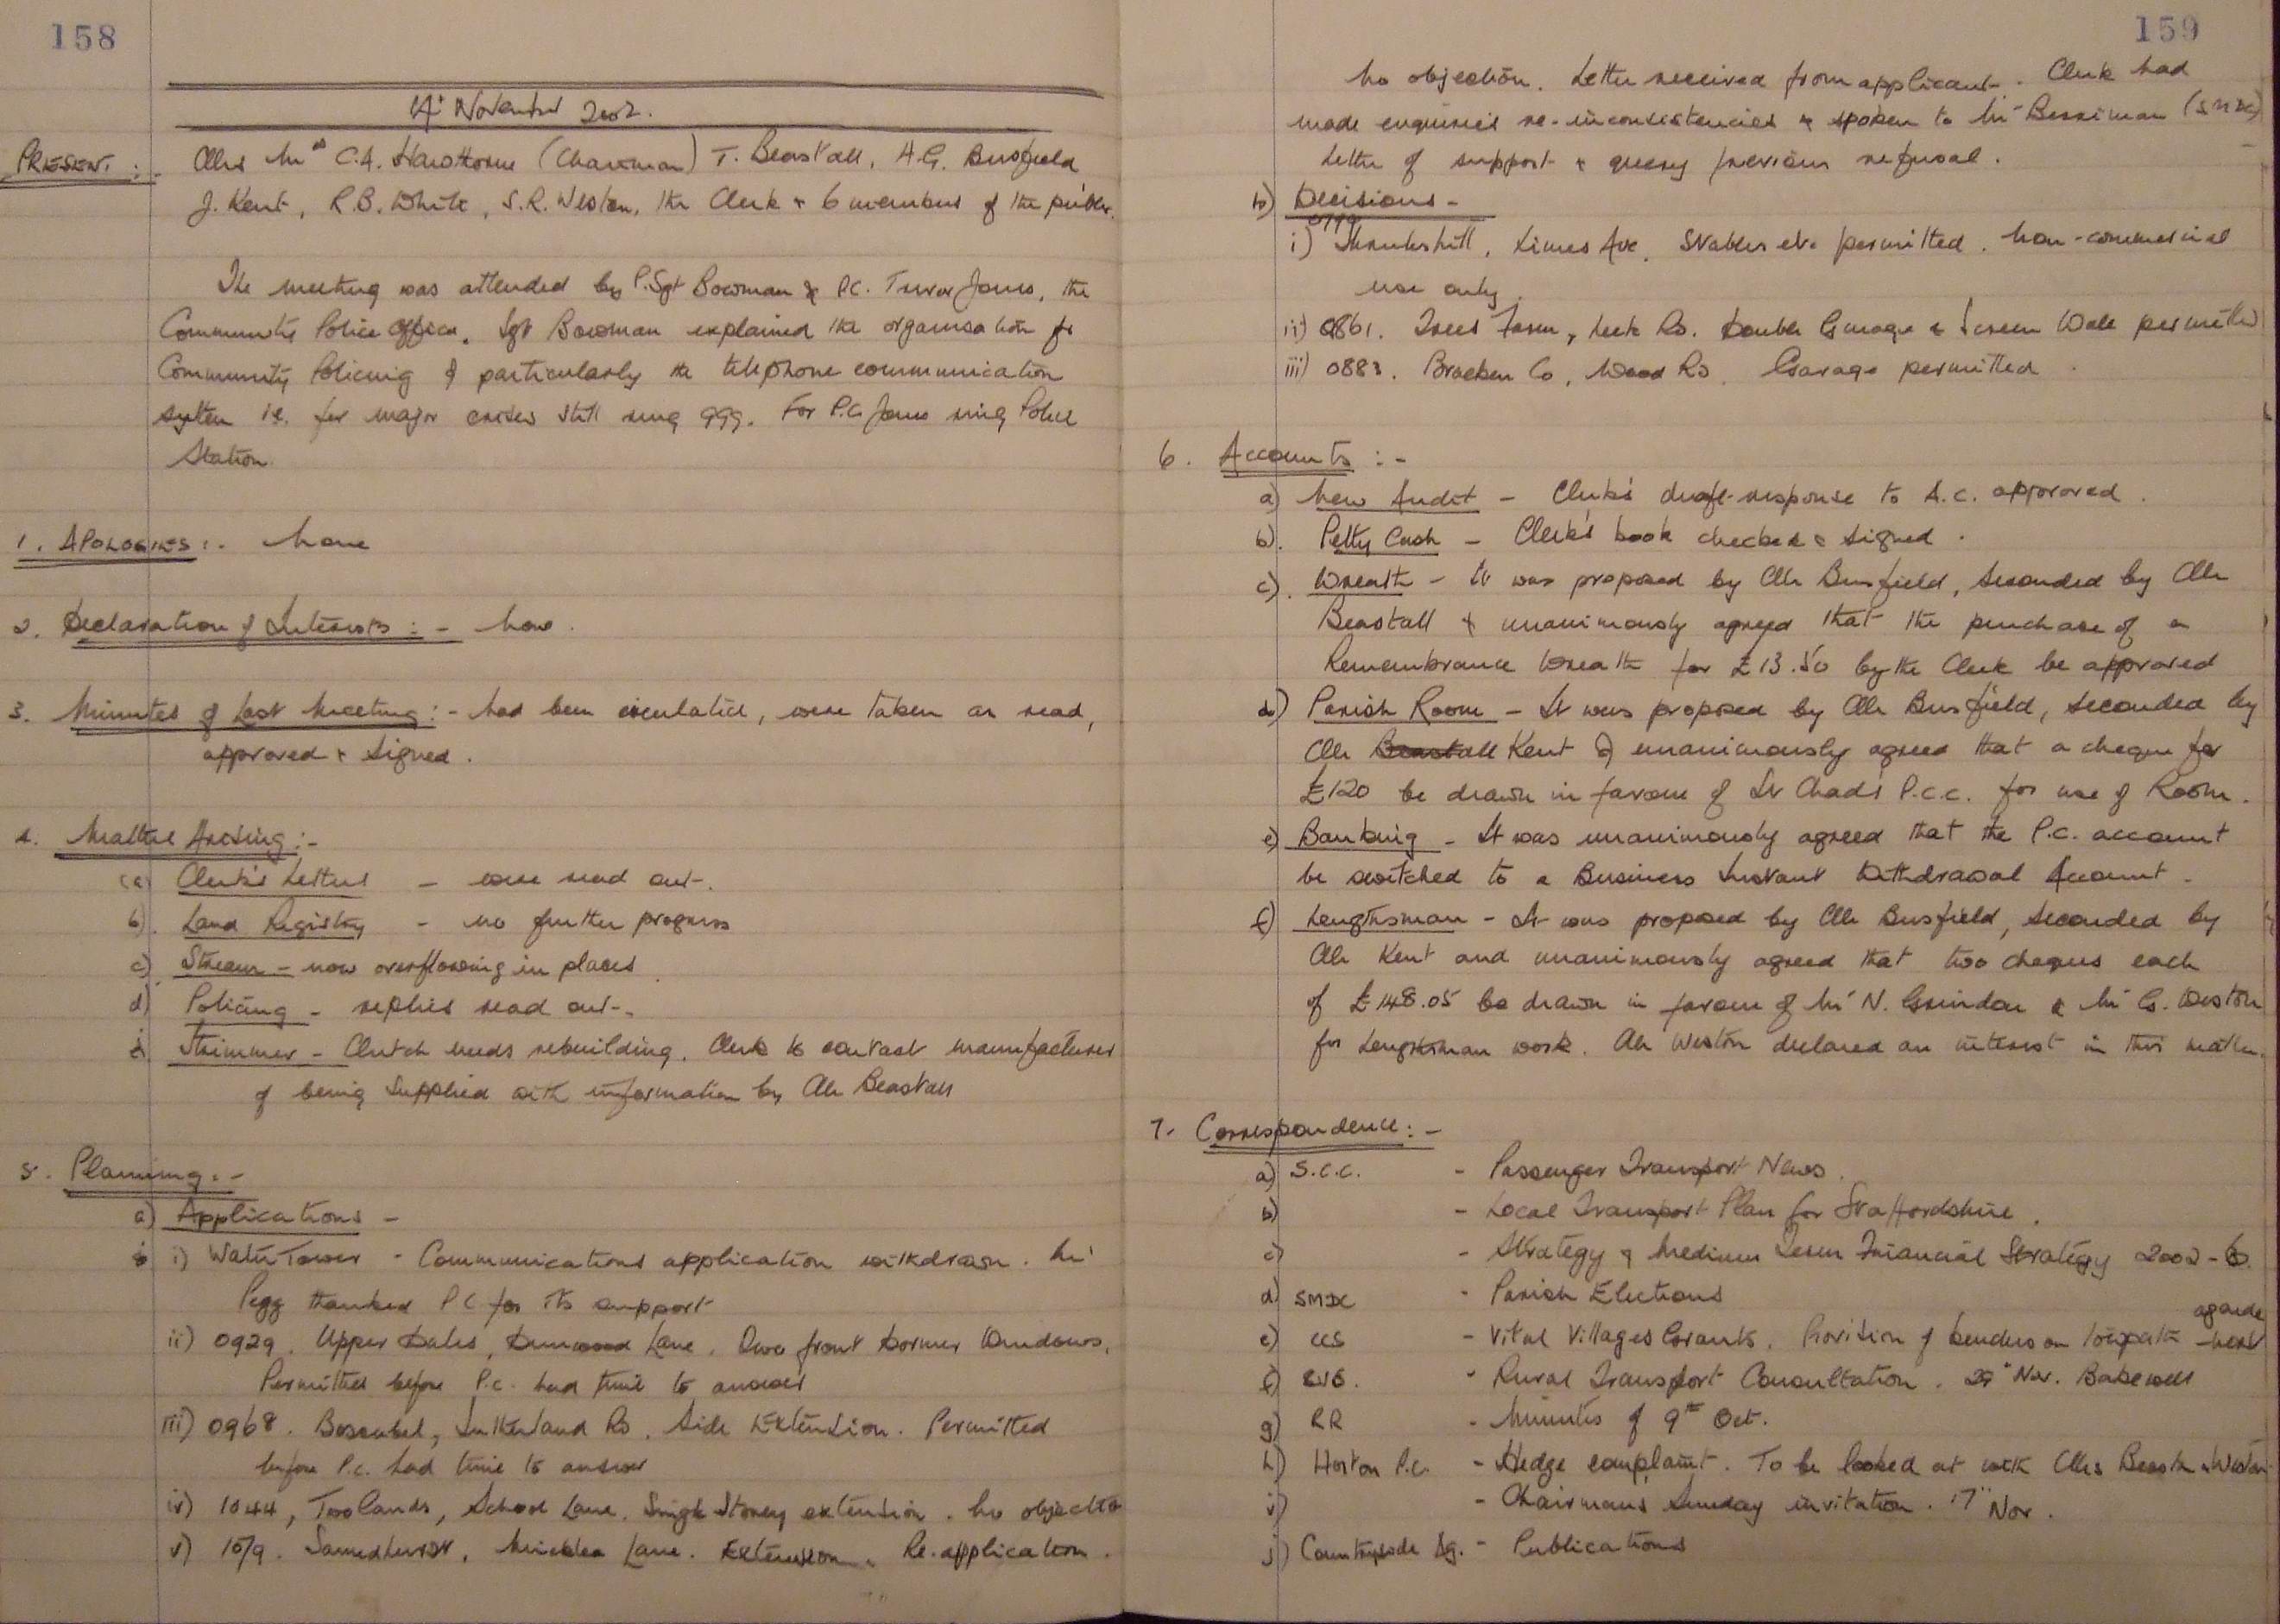 158
4th November 2002.
PRESENT :- Cllrs Mrs C.A. Hawthorne (Chairman) T. Beastall, H.G. Busfield
J. Kent, R.B. White, S.R. Weston, the Clerk & 6 members of the public.
The meeting was attended by P.Sgt Bowman & P.C. Trevor Jones, the
Community Police Officer. Sgt Bowman explained the organisation for
Community Policing & particularly the telephone communication
system i.e. for major crises still ring 999. For P.C. Jones ring Police
Station.
1. APOLOGIES :- None
2. Declaration of Interests :- None.
3. Minutes of Last Meeting :- had been circulated, were taken as read,
approved & signed.
4. Matters Arising :-
(a) Clerk's Letters - were read out.
b). Land Registry - no further progress
c) Stream - now overflowing in places.
d) Policing - replies read out.
Strimmer - Clutch needs rebuilding. Clerk to contact manufacturer
of being supplied with information by Cllr Beastall
5. Planning :-
a) Applications -
i) Water Tower - Communications application withdrawn. Mr
Pegg thanked P.C. for its support
ii) 0929. Upper Dales, Dunwood Lane. Two front Dormer Windows.
Permitted before P.C. had time to answer
iii) 0968. Boscobel, Sutherland Rd. Side Extension. Permitted
before P.C. had time to answer
iv) 1044, Toolands, School Lane. Single Storey extension. No objection
v) 1079. Lane. Extension. Re-application.
159
No objection. Letter received from applicant. Clerk had
made enquiries re-inconsistencies & spoken to Mr Berriman (SMDC)
Letter of support & query previous refusal.
b) Decisions -
0799
i) Thrubshill, Limes Ave. Stables etc permitted. Non-commercial
use only.
ii) 0861. Trees Farm, Leek Rd. Double Garage & Screen Wall permitted
iii) 0883. Bracken Co, Wood Rd. Garage permitted.
6. Accounts :-
a) New Audit - Clerk's draft response to A.C. approved.
b). Petty Cash - Clerk's book checked & signed.
c). Wreath - It was proposed by Cllr Busfield, seconded by Cllr
Beastall & unanimously agreed that the purchase of a
Remembrance Wreath for £13.50 by the Clerk be approved
d) Parish Room - It was proposed by Cllr Busfield, seconded by
Cllr Beastall Kent & unanimously agreed that a cheque for
£120 be drawn in favour of St Chad's P.C.C. for use of Room.
e) Banking - It was unanimously agreed that the P.C. account
be switched to a Business Instant Withdrawal Account.
f) Lengthsman - It was proposed by Cllr Busfield, seconded by
Cllr Kent and unanimously agreed that two cheques each
of £148.05 be drawn in favour of Mr N. Grindon & Mr G. Weston
for Lengthsman work. Cllr Weston declared an interest in this matter.
7. Correspondence :-
a) S.C.C. - Passenger Transport News.
b) - Local Transport Plan for Staffordshire.
c) - Strategy & Medium Term Financial Strategy 2002-6.
d) SMDC - Parish Elections
agenda
e) CCS - Vital Villages Grants. Provision of benches on towpath - next
f) - Rural Transport Consultation. Nov. Bakewell
g) RR - Minutes of 9th Oct.
h) Horton P.C. - Hedge complaint. To be looked at with Cllrs Beastall & Weston
i) - Chairman's Sunday invitation. 17th Nov.
j) Countryside Ag. - Publications